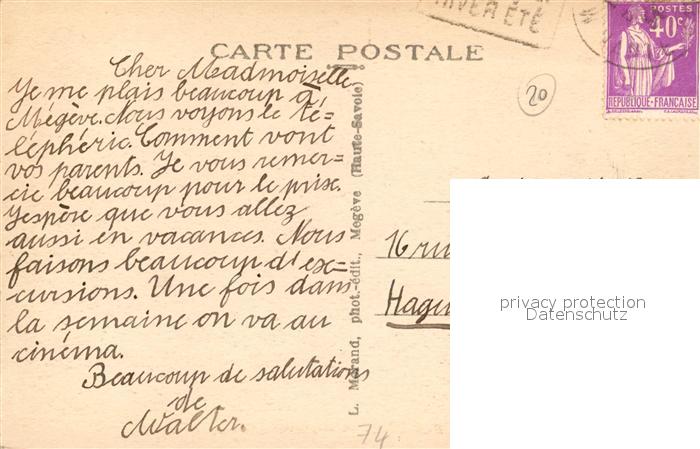 HIVER ÉTÉ
POSTES
40c
RÉPUBLIQUE-FRANÇAISE
CARTE POSTALE
20
Cher Madmoiselle
Je me plais beaucoup à
Mégève. Nous voyons le té=
léphéric. Comment vont
vos parents. Je vous remer=
cie beaucoup pour le prise.
J'espère que vous allez
aussi en vacances. Nous
faisons beaucoup d'ex=
cursions. Une fois dans
la semaine on va au
cinéma.
Beaucoup de salutations
de
Walter.
L. Morand, phot.-édit., Megève (Haute-Savoie)
16 rue
Hagu
privacy protection
Datenschutz
74